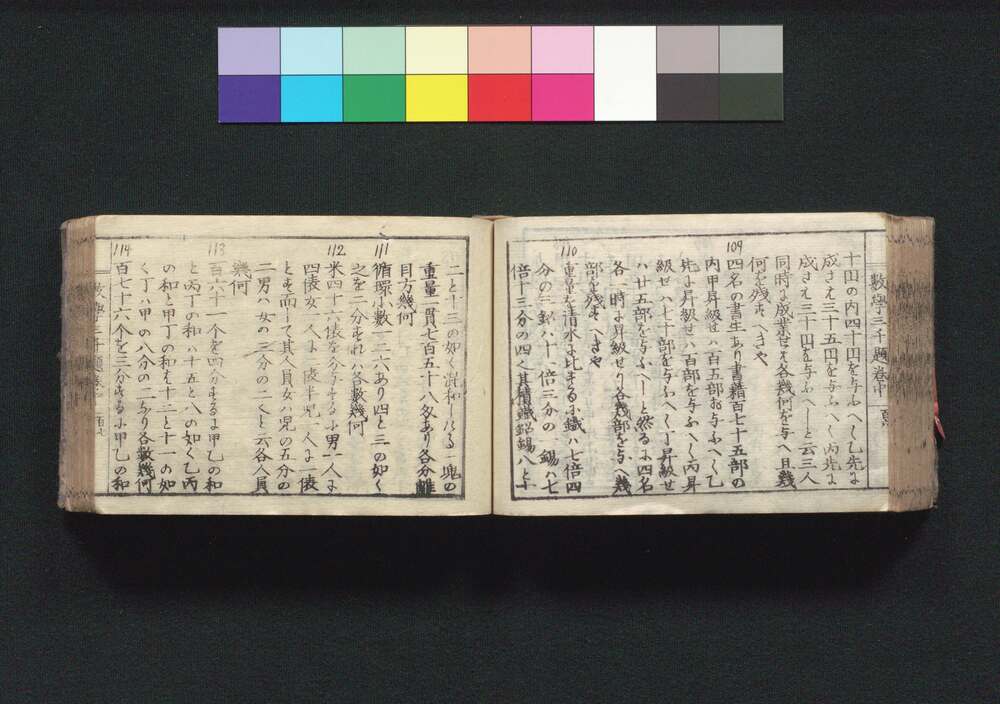 數學三千題卷中
十円の内四十円を与ふへし乙先よ
成さえ三十五円を与ふへく丙先よ
成さえ三十円を与ふへしと云三人
同時よ成業せえ各幾何を与へ且幾
何を残すへきや
109
四名の書生あり書籍百七十五部の
内甲昇級せハ百五部お与ふへく乙
先よ昇級せハ百部を与ふへし丙昇
級せハ七十部を与ふへく丁昇級せ
ハ廿五部を与ふへしと然るよ四名
各一時よ昇級せり各幾部を与へ幾
部を残すへきや
110
重量を清水よ比するよ鐵ハ七倍四
分の三鉛ハ十一倍三分の一錫ハ七
倍十三分の四く其積鐵鉛錫八と十
二と十三の如く混和したる一塊の
重量二貫七百五十八匁あり各分離
目方幾何
111
循環小數一二六あり四と三の如く
之を二分すれハ各數幾何
112
米四十六俵を分与するよ男一人よ
四俵女一人よ一俵半児一人よ一俵
とす而して其人員女ハ児の五分の
二男ハ女の三分の二くと云各人員
幾何
113
百六十一个を四分するよ甲乙の和
と丙丁の和ハ十五と八の如く乙丙
の和と甲丁の和ハ十二と十一の如
く丁ハ甲の八分の一なり各數幾何
114
百七十六个を三分するよ甲乙の和